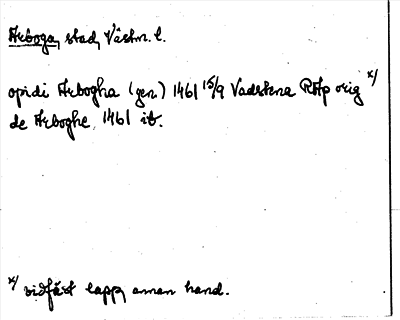 Arboga, stad, Västm. l.
opidi Arbogha (gen.) 1461 15/9 Vadstena RAp orig x/
de Arboghe, 1461 ib.
x/ vidfäst lapp, annan hand.